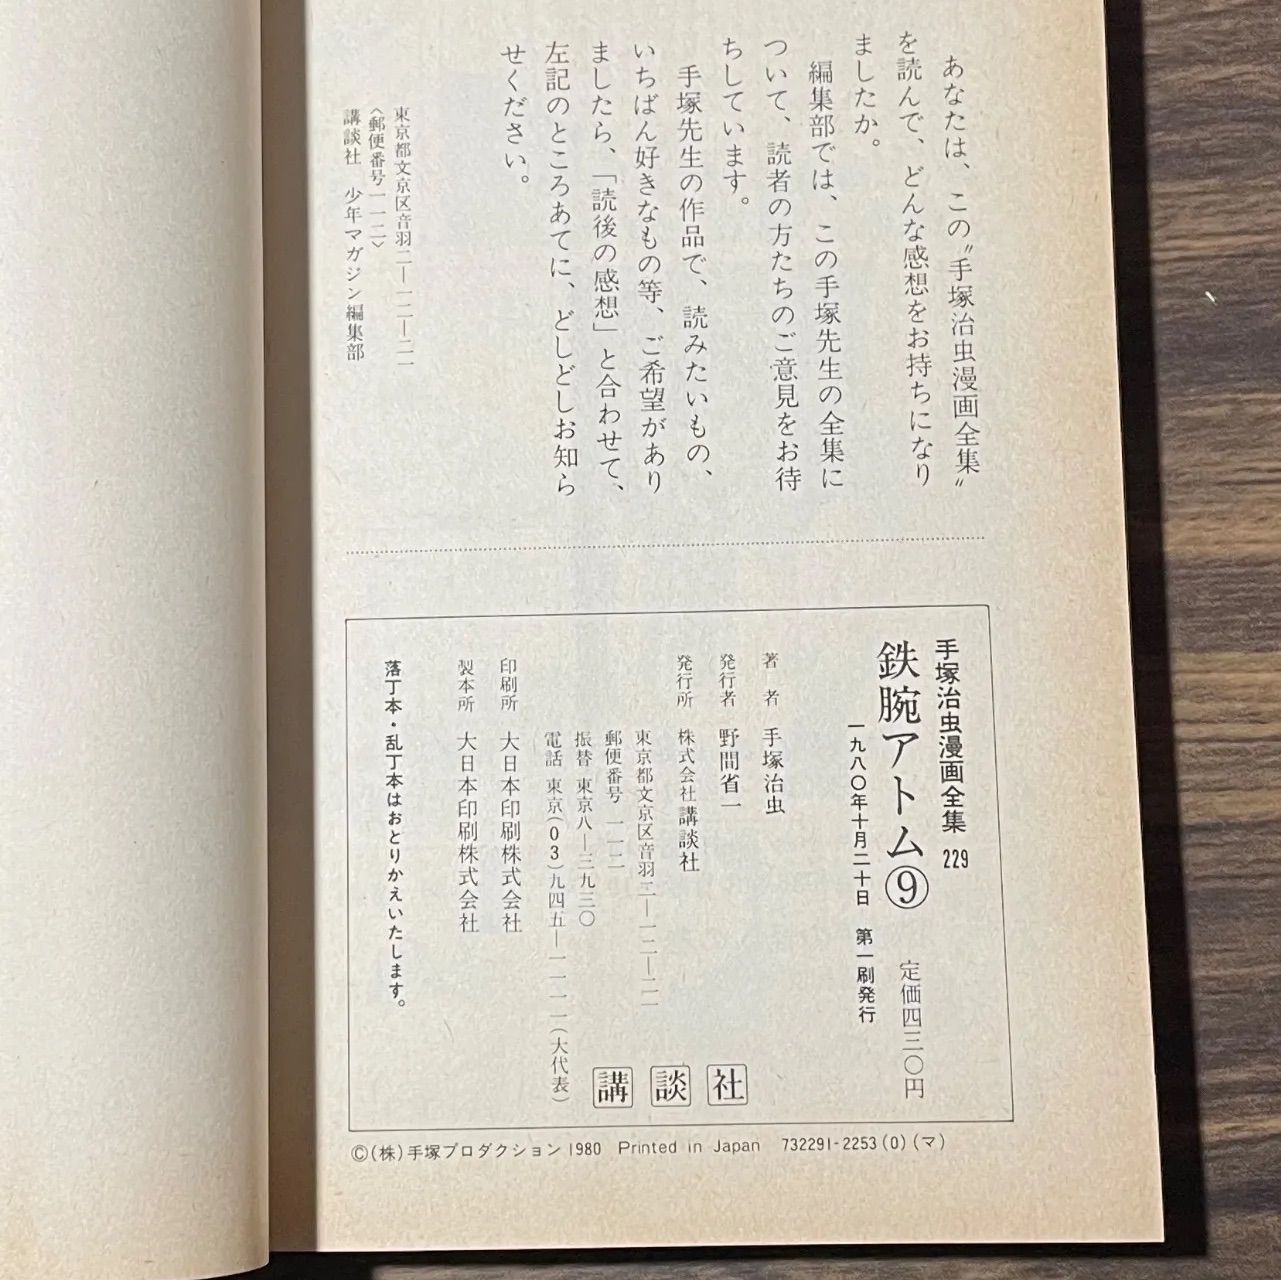 あなたは、この〝手塚治虫漫画全集〟
を読んで、どんな感想をお持ちになり
ましたか。
編集部では、この手塚先生の全集に
ついて、読者の方たちのご意見をお待
ちしています。
手塚先生の作品で、読みたいもの、
いちばん好きなもの等、ご希望があり
ましたら、「読後の感想」と合わせて、
左記のところあてに、どしどしお知ら
せください。
東京都文京区音羽二―一二―二一
〈郵便番号一一二〉
講談社 少年マガジン編集部
手塚治虫漫画全集 229
鉄腕アトム⑨ 定価四三〇円
一九八〇年十月二十日 第一刷発行
著者 手塚治虫
発行者 野間省一
発行所 株式会社講談社
東京都文京区音羽二―一二―二一
郵便番号 一一二
振替 東京八―三九三〇
電話 東京(03)九四五―一一一一(大代表)
印刷所 大日本印刷株式会社
製本所 大日本印刷株式会社
落丁本・乱丁本はおとりかえいたします。
講談社
©(株)手塚プロダクション 1980 Printed in Japan 732291-2253(0)(マ)